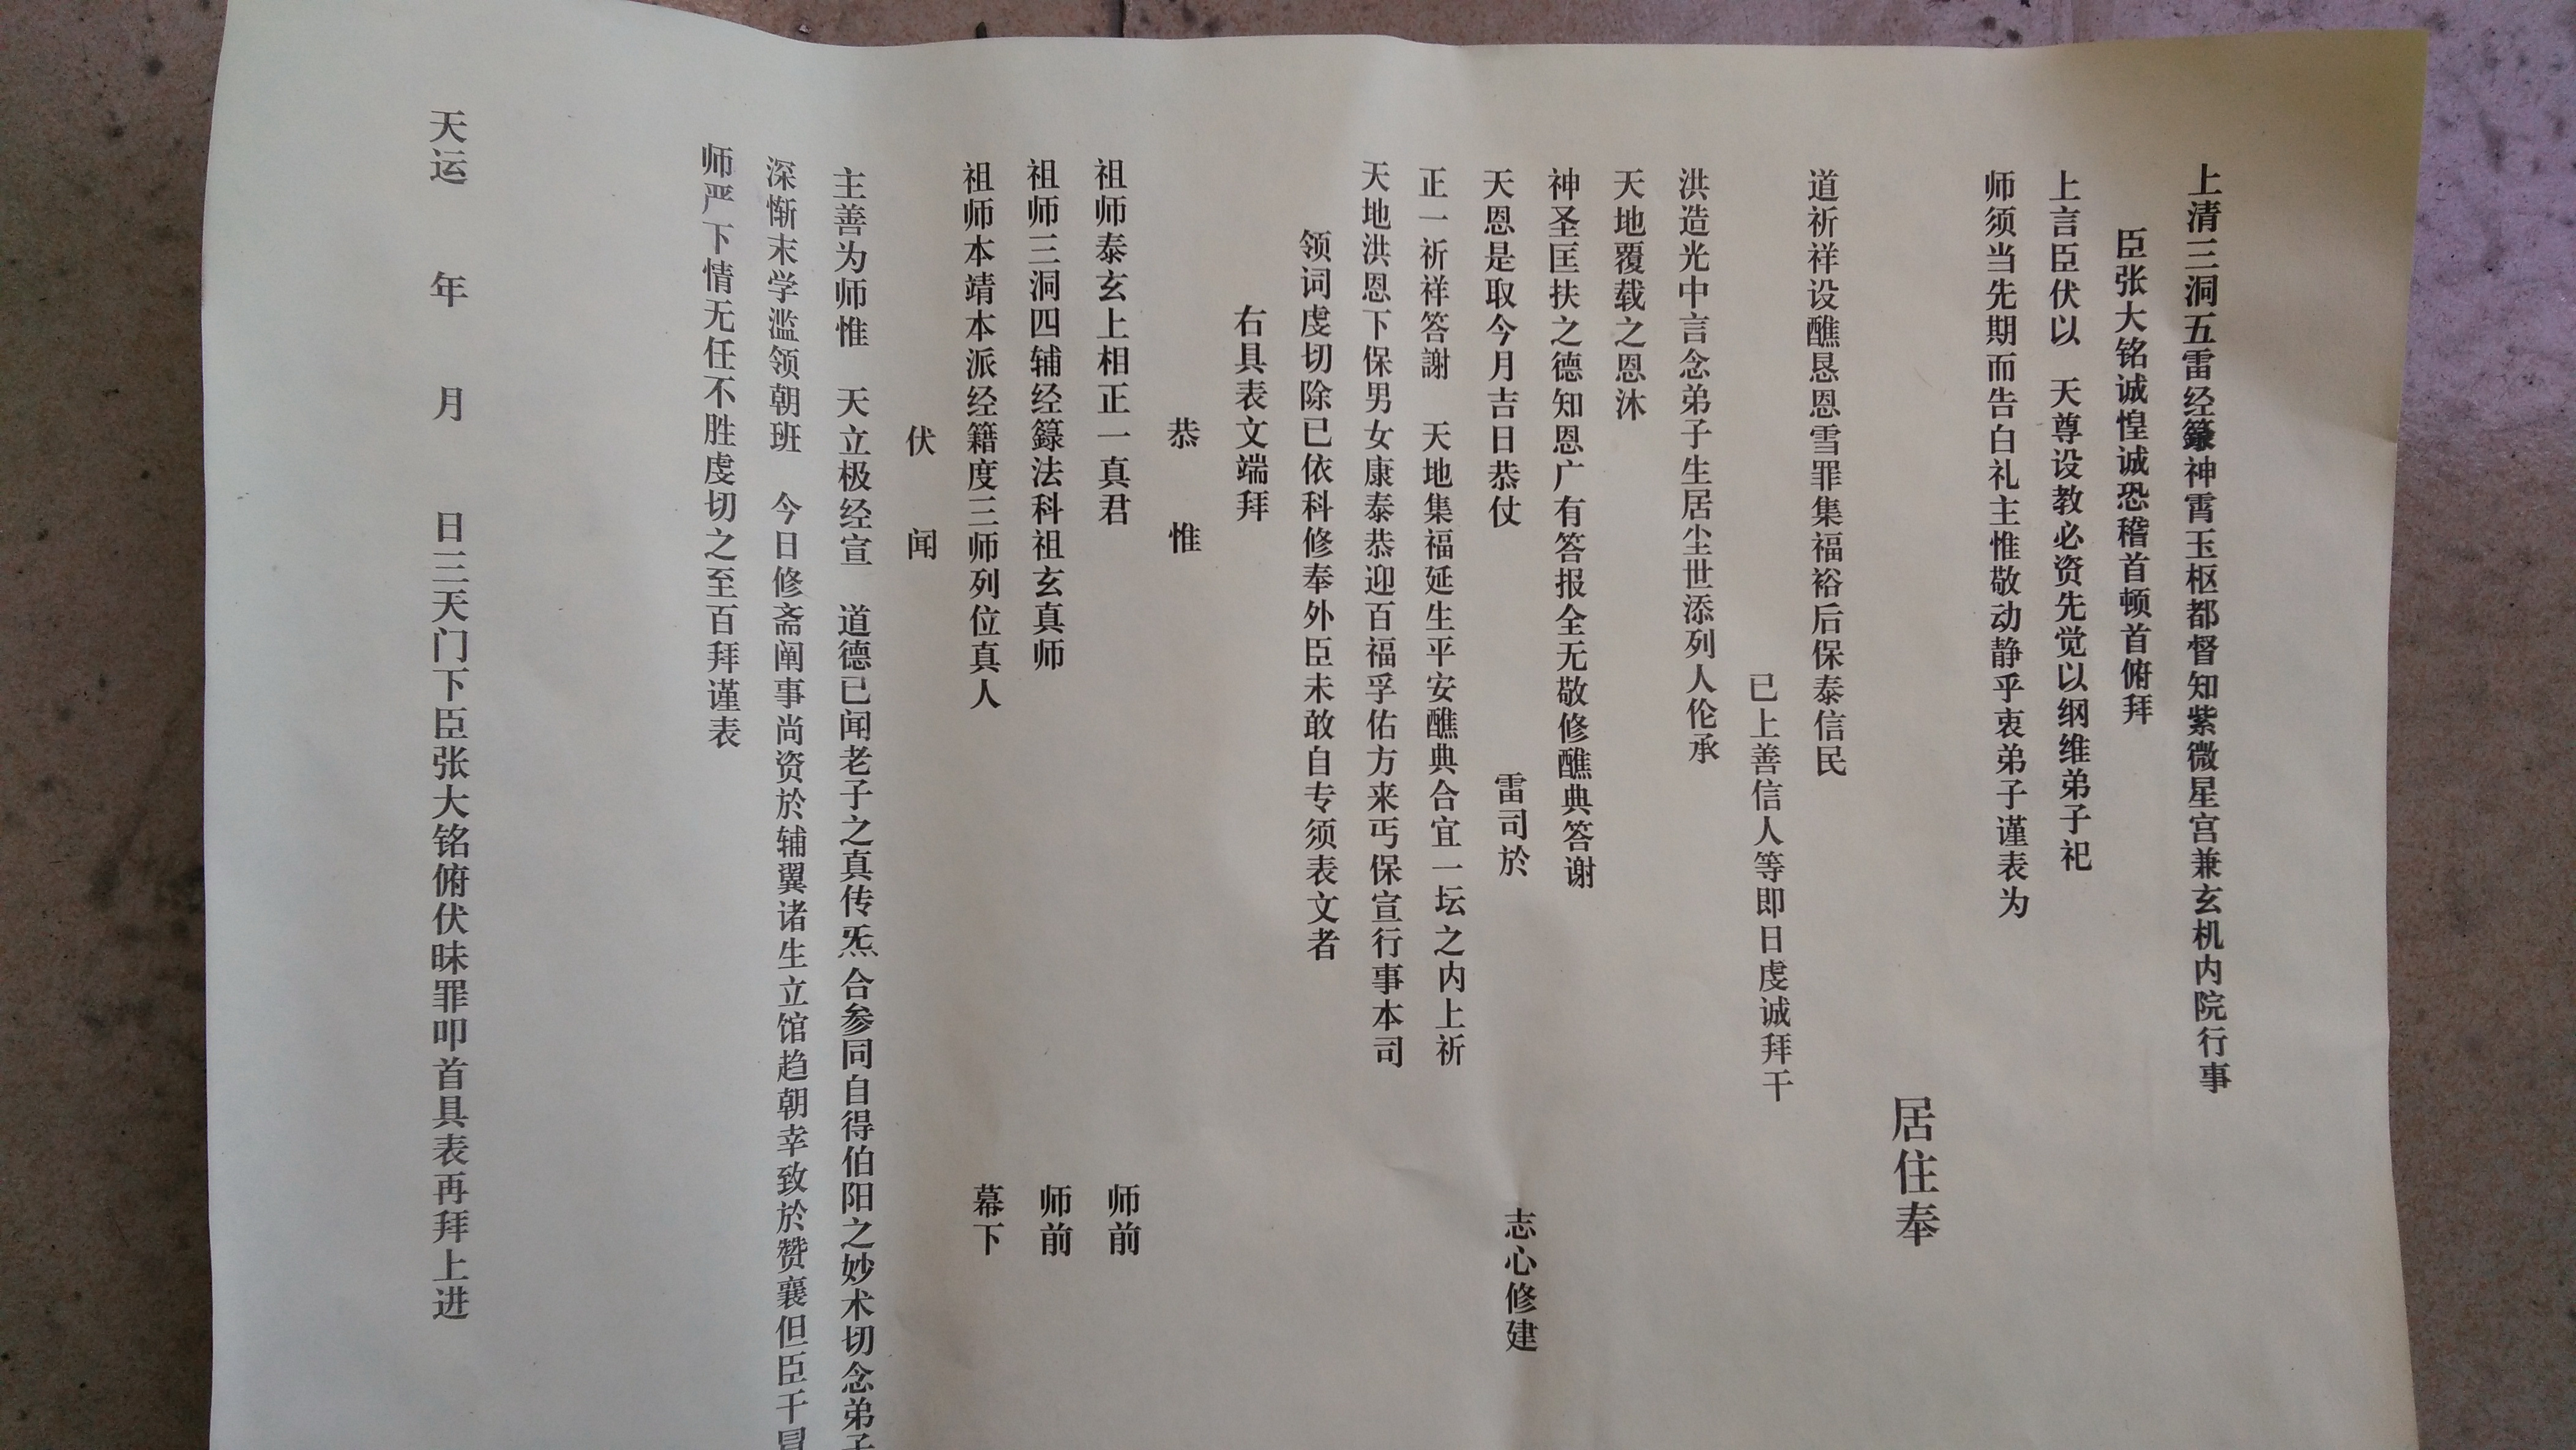 上清三洞五雷经籙神霄玉枢都督知紫微星宫兼玄机内院行事
臣张大铭诚惶诚恐稽首顿首俯拜
上言臣伏以　天尊设教必资先觉以纲维弟子祀
师须当先期而告白礼主惟敬动静乎衷弟子谨表为
居住奉
道祈祥设醮恳恩雪罪集福裕后保泰信民
已上善信人等即日虔诚拜干
洪造光中言念弟子生居尘世添列人伦承
天地覆载之恩沐
神圣匡扶之德知恩广有答报全无敬修醮典答谢
天恩是取今月吉日恭仗　雷司於　志心修建
正一祈祥答謝　天地集福延生平安醮典合宜一坛之内上祈
天地洪恩下保男女康泰恭迎百福孚佑方来丐保宣行事本司
领词虔切除已依科修奉外臣未敢自专须表文者
右具表文端拜
恭　惟
祖师泰玄上相正一真君　师前
祖师三洞四辅经籙法科祖玄真师　师前
祖师本靖本派经籍度三师列位真人　幕下
伏　闻
主善为师惟　天立极经宣　道德已闻老子之真传炁合参同自得伯阳之妙术切念弟子
深惭末学滥领朝班　今日修斋阐事尚资於辅翼诸生立馆趋朝幸致於赞襄但臣干冒
师严下情无任不胜虔切之至百拜谨表
天运　年　月　日三天门下臣张大铭俯伏昧罪叩首具表再拜上进